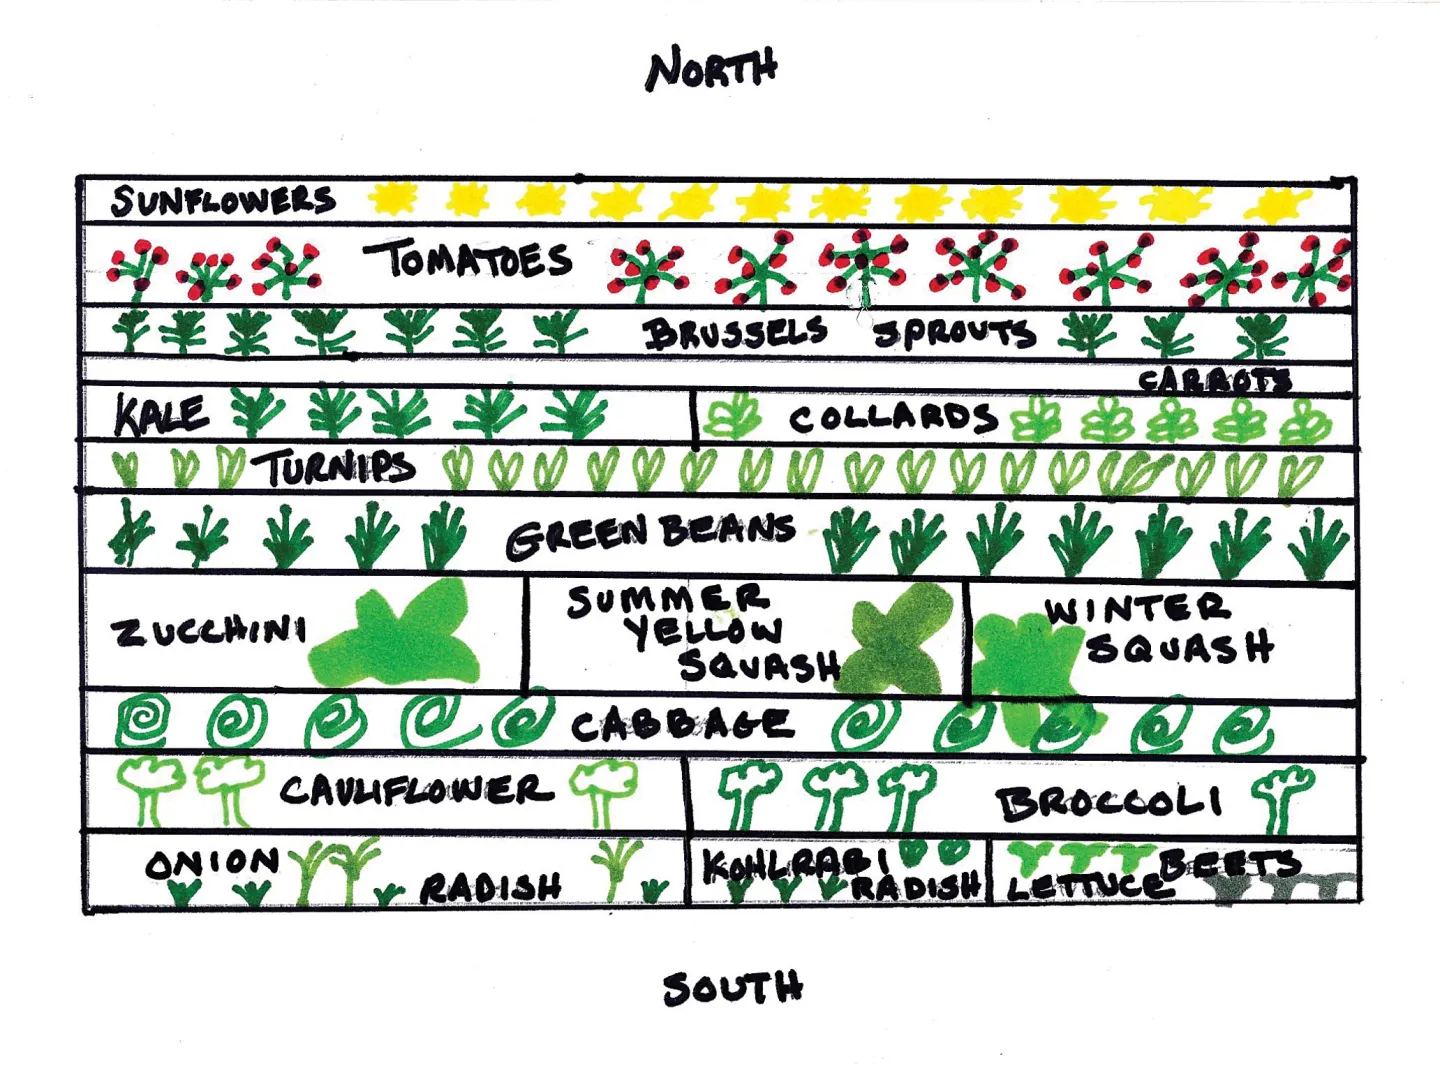 NORTH
SUNFLOWERS
TOMATOES
BRUSSELS SPROUTS
CARROTS
KALE
COLLARDS
TURNIPS
GREEN BEANS
ZUCCHINI
SUMMER
YELLOW
SQUASH
WINTER
SQUASH
CABBAGE
CAULIFLOWER
BROCCOLI
ONION
RADISH
KOHLRABI
RADISH
BEETS
LETTUCE
SOUTH